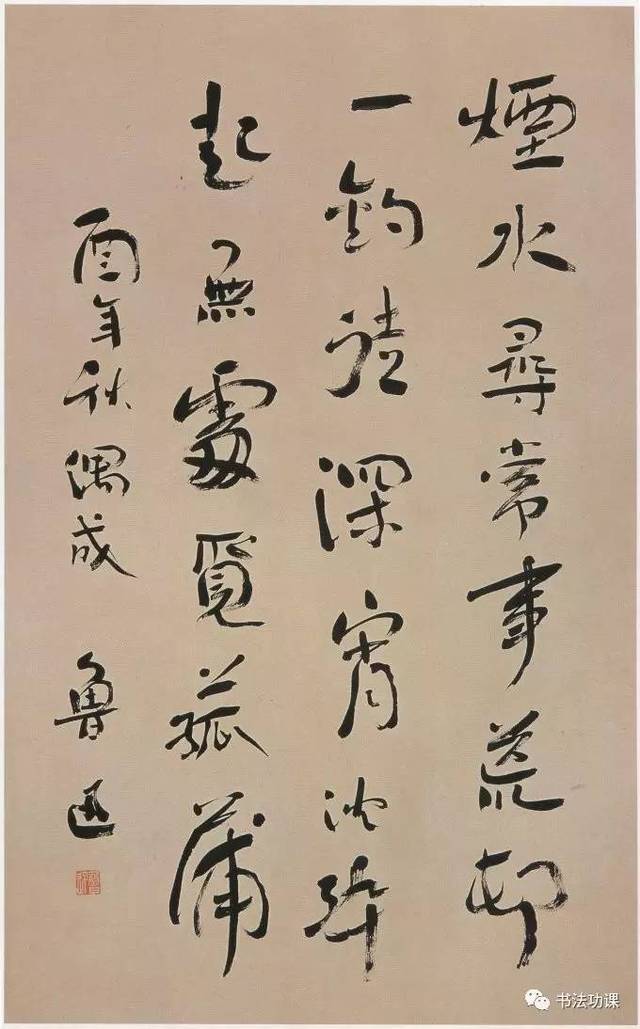 煙水尋常事荒邨
一釣徒深宵沈醉
起無處覓菰蒲
酉年秋偶成 魯迅
书法功课